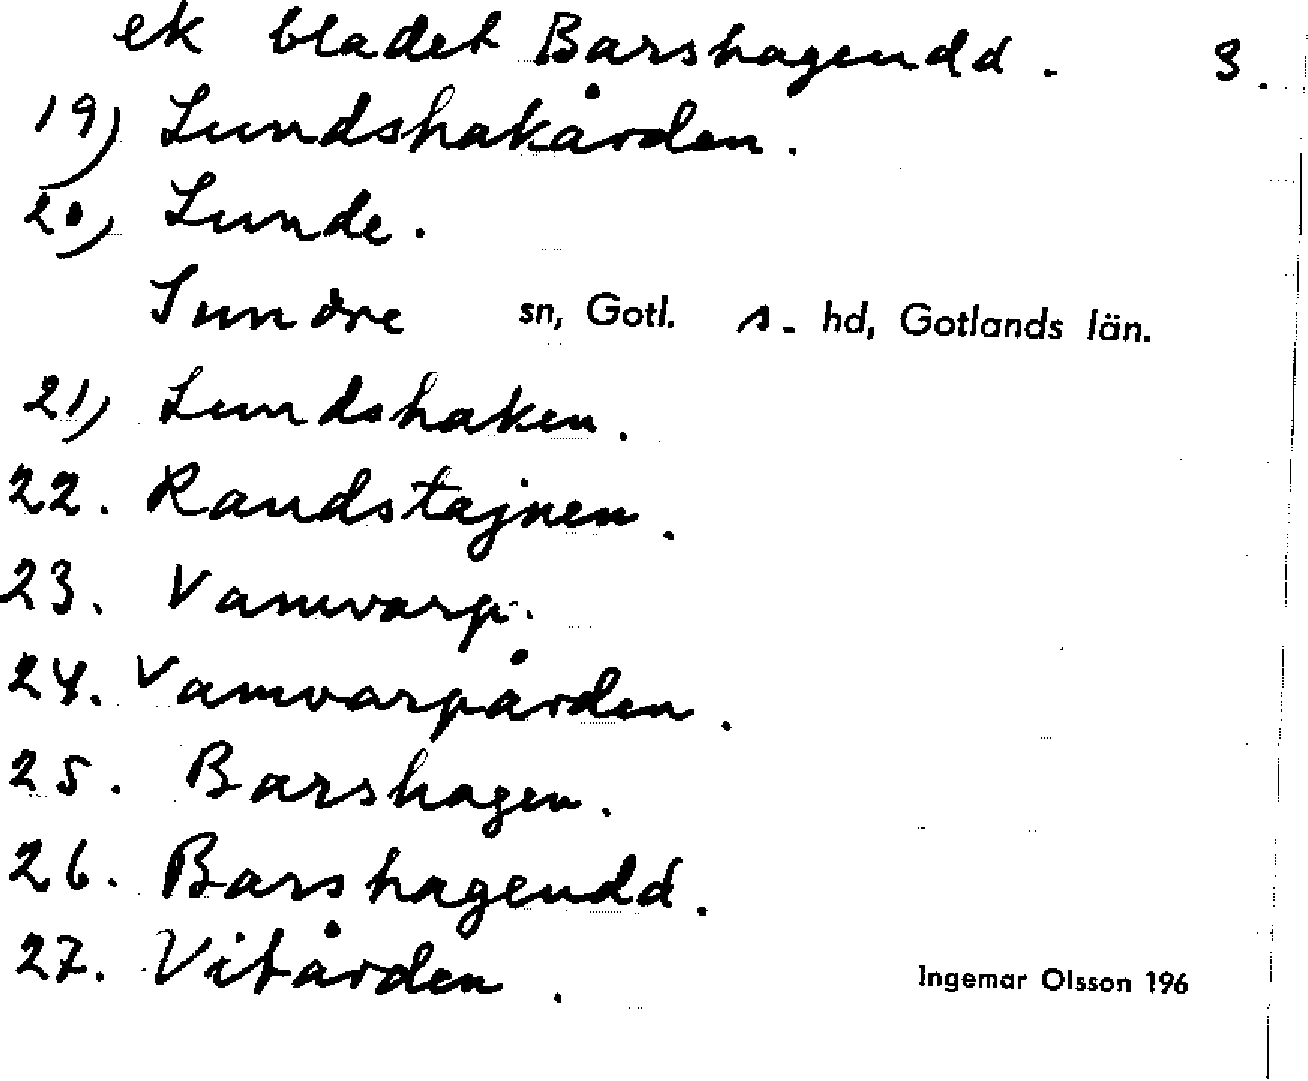 ek bladet Barshageudd. 3.
19) Lundshakården.
20) Lunde.
Sundre sn, Gotl. s. hd, Gotlands län.
21) Lundshaken.
22. Raudstajnen.
23. Vamvarp.
24. Vamvarpården.
25. Barshagen.
26. Barshageudd.
27. Vitården.
Ingemar Olsson 196